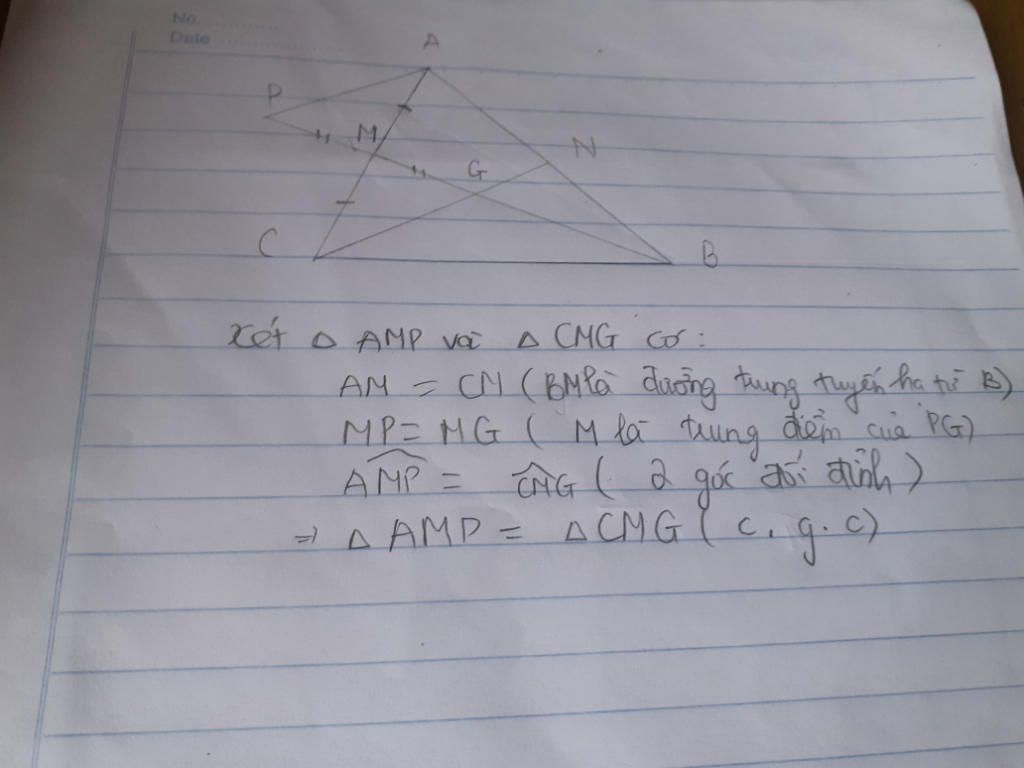 No. ....................
Date ....................
A
P
M
N
G
C
B
Xét △ AMP và △ CMG có:
AM = CM ( BM là đường trung tuyến hạ từ B)
MP = MG ( M là trung điểm của PG)
$\widehat{AMP}$ = $\widehat{CMG}$ ( 2 góc đối đỉnh )
=> △ AMP = △ CMG ( c. g. c)